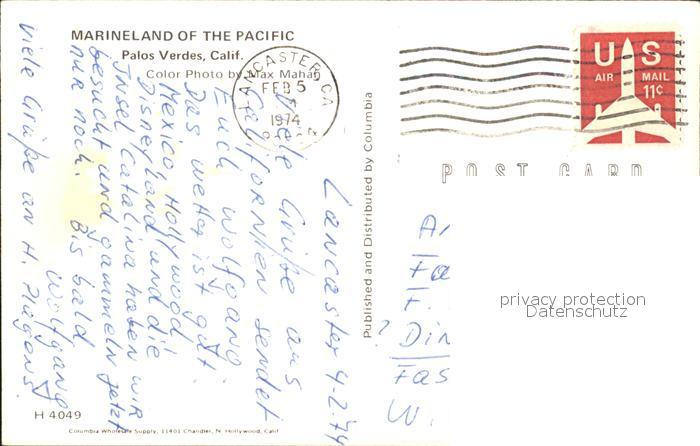 MARINELAND OF THE PACIFIC
Palos Verdes, Calif.
Color Photo by Max Mahan
LANCASTER, CA
FEB 5
1974
U S
AIR MAIL
11¢
POST CARD
Published and Distributed by Columbia
Lancaster 4-2-74
Viele Grüße aus
Californien sendet
Euch Wolfgang
Das wetter ist gut.
Mexico Hollywood
Disneyland und die
Insel Catalina haben wir
besucht und gammeln jetzt
nur noch. Bis bald
Wolfgang
Viele Grüße an H. Plagens!
Fa
F.
? Din
Fas
W.
privacy protection
Datenschutz
H 4049
Columbia Wholesale Supply, 11401 Chandler, N. Hollywood, Calif.